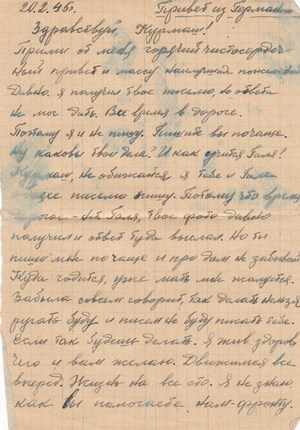 20.2.45г. Привет из Герман
Здравствуй Курман!
Прими от меня горячий чистосердеч
ный привет и массу наилучших пожеланий
Давно я получил твое письмо, но ответа
не мог дать. Все время в дороге.
Потому я и не пишу. Пишите вы почаще.
Ну каковы твои дела? И как учится Галя?
Курман, не обижайся я тебе и Гале
письмо пишу. Потому что время
нет. Галя, твое фото давно
получил и ответ туда выслал. Но ты
пиши мне почаще и про дом не забывай
Куда годится, уже мать мне жалуется.
Забыла совсем говорит, так делать нельзя
ругать буду и писем не буду писать тебе.
Если так будешь делать. Я жив здоров
чего и вам желаю. Движимся все
вперед. Жизнь на все сто. Я не знаю
как вы помогаете нам-фронту.